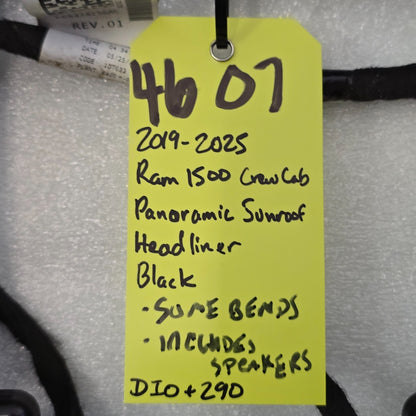 REV.01
DATE
CODE
4607
2019-2025
Ram 1500 Crew Cab
Panoramic Sunroof
Headliner
Black
• SOME BENDS
• INCLUDES
SPEAKERS
DIO + 290